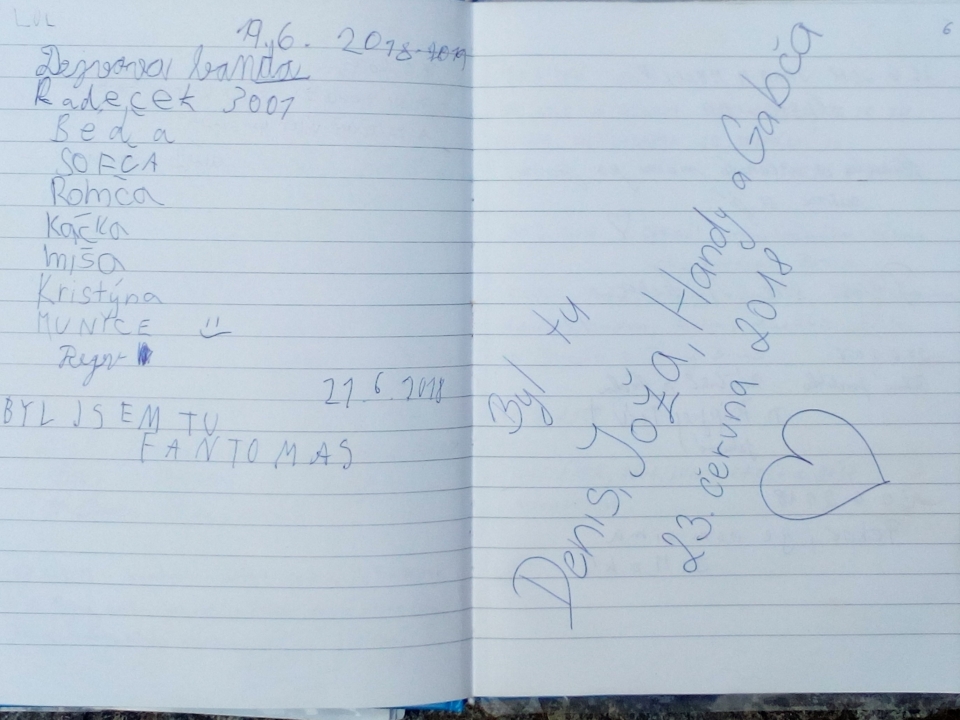 LOL
19.6. 2018-2019
banda
Radeček 3001
Béďa
SOFČA
Romča
Káčka
Míša
Kristýna
MUNYCE
21.6.2018
BYL JSEM TU
FANTOMAS
6
Byl tu
Denis, Joža, Handy a Gabča
23. června 2018